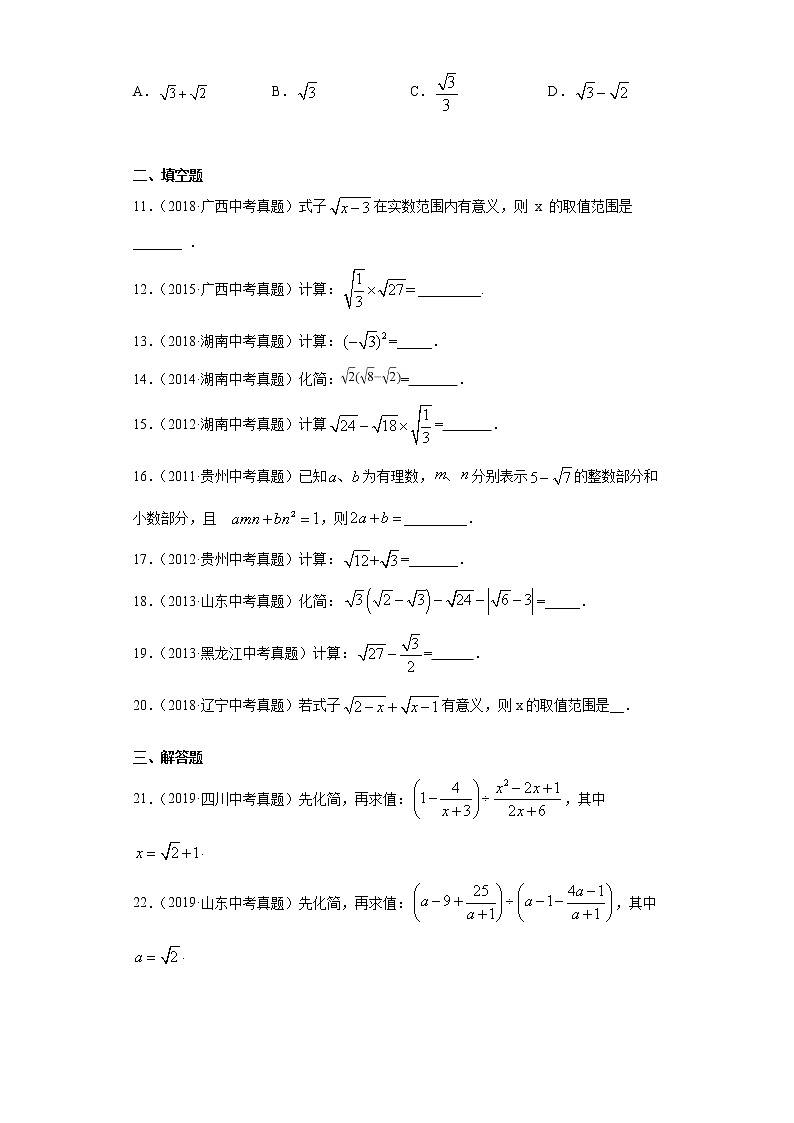 A. √3+√2 B. √3 C. √3/3 D. √3−√2
二、填空题
11.(2018·广西中考真题)式子√(x−3)在实数范围内有意义,则 x 的取值范围是
_______ .
12.(2015·广西中考真题)计算:√(1/3)×√27=_________.
13.(2018·湖南中考真题)计算:(−√3)²=_____.
14.(2014·湖南中考真题)化简:√2(√8−√2)=_______.
15.(2012·湖南中考真题)计算√24−√18×√(1/3)=_______.
16.(2011·贵州中考真题)已知a、b为有理数,m、n分别表示5−√7的整数部分和
小数部分,且 amn+bn²=1,则2a+b=_________.
17.(2012·贵州中考真题)计算:√12+√3=_______.
18.(2013·山东中考真题)化简:√3(√2−√3)−√24−|√6−3|=_____.
19.(2013·黑龙江中考真题)计算:√27−√3/2=______.
20.(2018·辽宁中考真题)若式子√(2−x)+√(x−1)有意义,则x的取值范围是__.
三、解答题
21.(2019·四川中考真题)先化简,再求值:(1−4/(x+3))÷(x²−2x+1)/(2x+6),其中
x=√2+1.
22.(2019·山东中考真题)先化简,再求值:(a−9+25/(a+1))÷(a−1−(4a−1)/(a+1)),其中
a=√2.